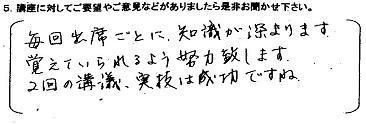 5. 講座に対してご要望やご意見などがありましたら是非お聞かせ下さい。
毎回出席ごとに、知識が深まります
覚えていられるよう努力致します。
2回の講議、実技は成功ですね